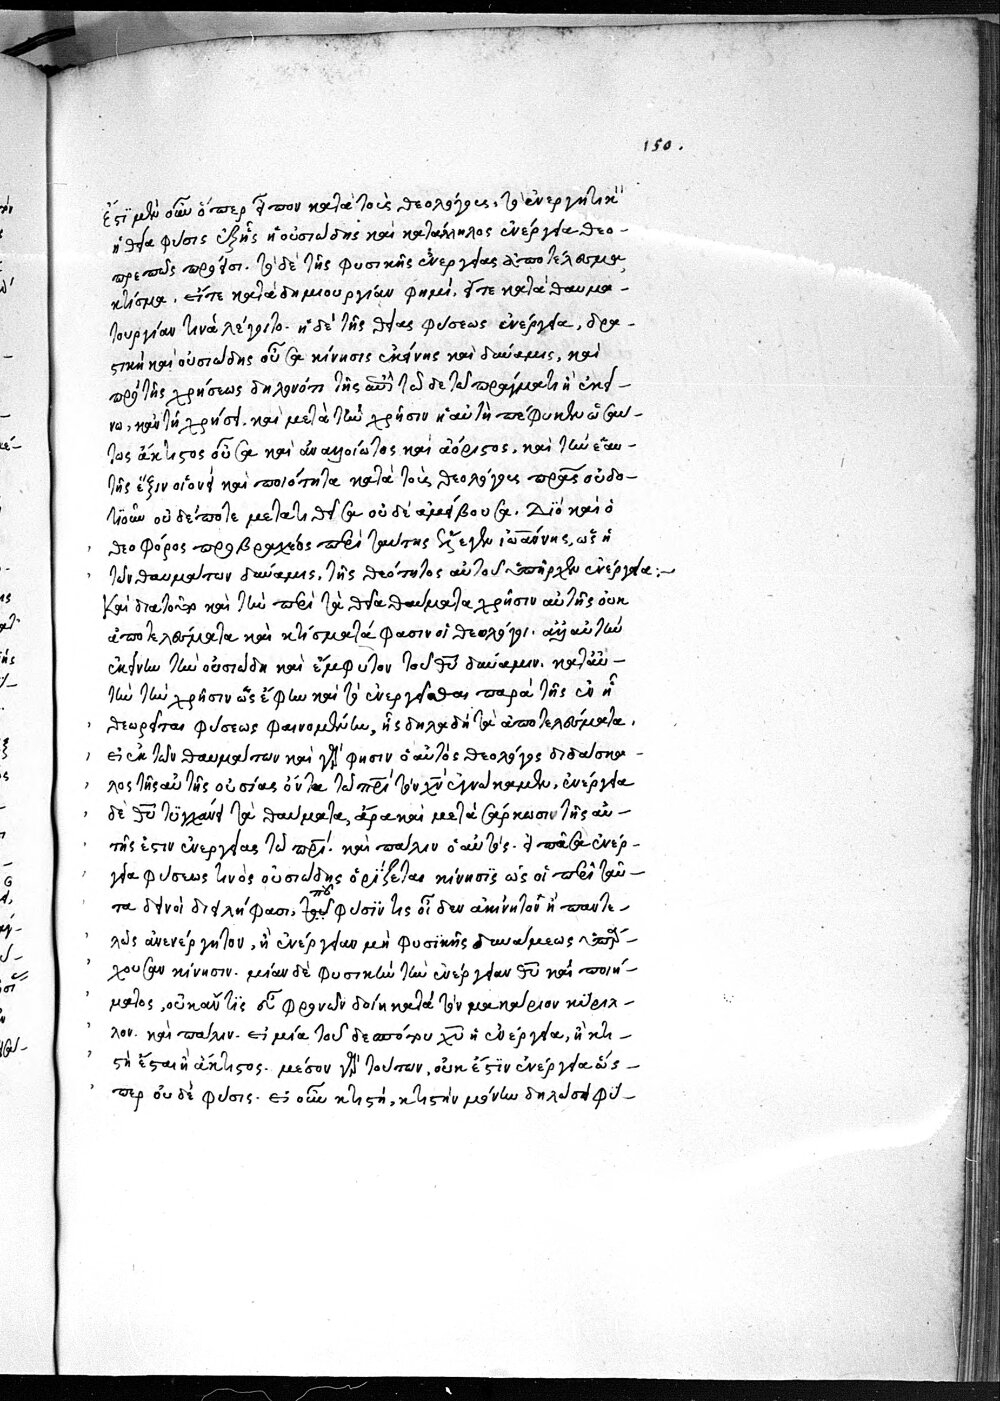 150.
Ἔστι μὲν οὖν ὅπερ εἶπον κατὰ τοὺς θεολόγους, τὸ ἐνεργητικὸν
ἡ θεία φύσις ἐξ ἧς ἡ οὐσιώδης καὶ κατάλληλος ἐνέργεια θεο-
πρεπῶς πρόεισι. τὸ δὲ τῆς φυσικῆς ἐνεργείας ἀποτέλεσμα,
κτίσμα. εἴτε κατὰ δημιουργίαν φημί, εἴτε κατὰ θαυμα-
τουργίαν τινὰ λέγοιτο. ἡ δὲ τῆς θείας φύσεως ἐνέργεια, δρα-
στικὴ καὶ οὐσιώδης οὖσα κίνησις ἐκείνης καὶ δύναμις, καὶ
πρὸ τῆς χρήσεως δηλονότι τῆς αὐτῆς τῶδε τῶ πράγματι ἢ ἐκεί-
νω, κἀν τῆ χρήσει. καὶ μετὰ τὴν χρῆσιν ἡ αὐτὴ πέφυκεν ὡσαύ-
τως ἄκτιστος οὖσα καὶ ἀναλλοίωτος καὶ ἀόριστος, καὶ τὴν ἑαυ-
τῆς ἕξιν οἱονεὶ καὶ ποιότητα κατὰ τοὺς θεολόγους πρὸς οὐδο-
τιοῦν οὐδέποτε μετατιθεῖσα οὐδὲ ἀμείβουσα. Διὸ καὶ ὁ
θεοφόρος πρὸ βραχέος περὶ ταύτης ἔλεγεν ἰωάννης, ὡς ἡ
τῶν θαυμάτων δύναμις, τῆς θεότητος αὐτοῦ ὑπῆρχεν ἐνέργεια:-
Καὶ διατοῦτο καὶ τὴν περὶ τὰ θεῖα θαύματα χρῆσιν αὐτῆς οὐκ
ἀποτελέσματα καὶ κτίσματά φασιν οἱ θεολόγοι. ἀλλ' αὐτὴν
ἐκείνην τὴν οὐσιώδη καὶ ἔμφυτον τοῦ θυ δύναμιν. κατ' αὐ-
τὴν τὴν χρῆσιν ὡς ἔφην καὶ τὸ ἐνεργεῖσθαι παρὰ τῆς ἐν ἧ
θεωρεῖται φύσεως φαινομένην, ἧς δηλαδὴ τὰ ἀποτελέσματα.
εἰ ἐκ τῶν θαυμάτων καὶ γὰρ φησιν ὁ αὐτὸς θεολόγος διδάσκα-
λος τῆς αὐτῆς οὐσίας ὄντα τῶ πρὶ τὸν χν ἐγνώκαμεν, ἐνέργεια
δὲ θυ τυγχάνει τὰ θαύματα, ἄρα καὶ μετὰ σάρκωσιν τῆς αὐ-
τῆς ἐστιν ἐνεργείας τῶ πρί. καὶ πάλιν ὁ αὐτός. εἰ πᾶσα ἐνέρ-
γεια φύσεώς τινος οὐσιώδης ὁρίζεται κίνησις ὡς οἱ περὶ ταῦ-
τα δεινοὶ διειλήφασι, ποῦ φύσιν τις οἶδεν ἀκίνητον ἢ παντε-
λῶς ἀνενέργητον, ἢ ἐνέργειαν μὴ φυσικῆς δυνάμεως ὑπάρ-
χουσαν κίνησιν. μίαν δὲ φυσικὴν τὴν ἐνέργειαν θυ καὶ ποιή-
ματος, οὐκ ἄν τις εὖ φρονῶν δοίη κατὰ τὸν μακάριον κύριλ-
λον. καὶ πάλιν. εἰ μία τοῦ δεσπότου χυ ἡ ἐνέργεια, ἢ κτι-
στὴ ἔσται ἢ ἄκτιστος. μέσον γὰρ τούτων, οὐκ ἔστιν ἐνέργεια ὥσ-
περ οὐδὲ φύσις. εἰ οὖν κτιστή, κτιστὴν μόνην δηλώσει φύ-